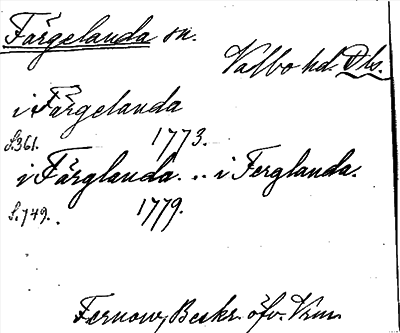 Färgelanda sn.
Valbo hd. Dls.
i Färgelanda
s. 361. 1773.
i Färglanda. .. i Ferglanda.
s. 749. 1779.
Fernow, Beskr. öfv. Vrm.